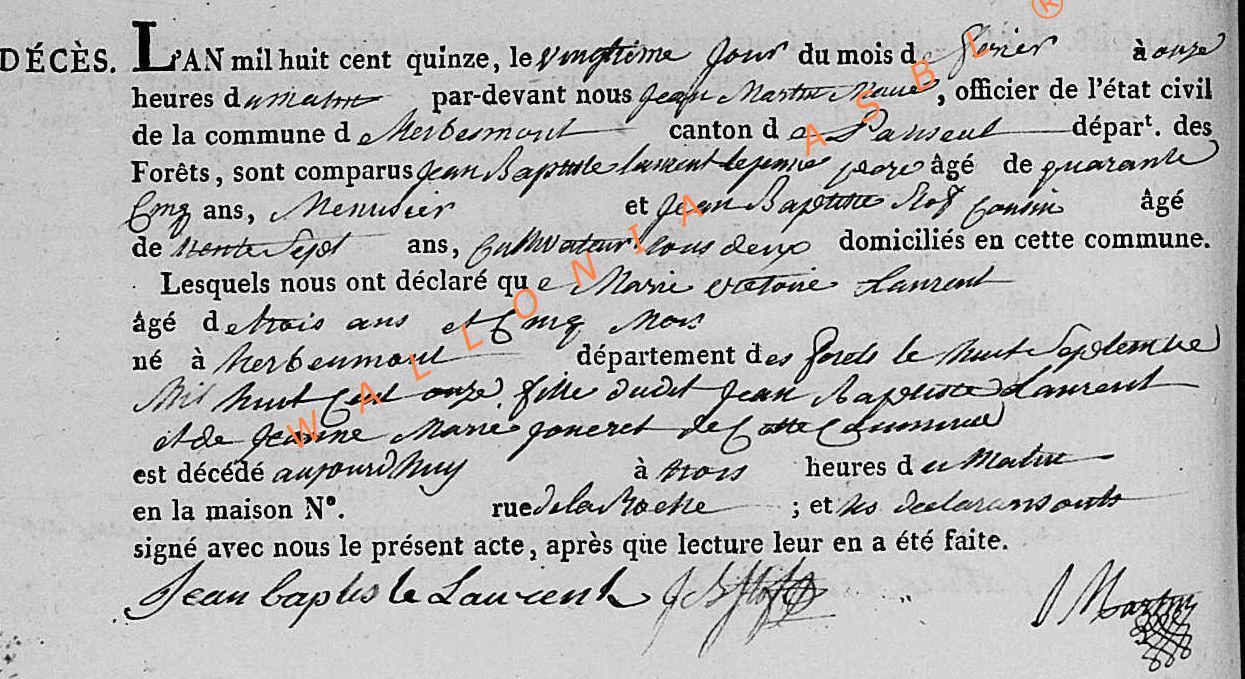 DÉCÈS. L'AN mil huit cent quinze, le vingtieme jour du mois de fevrier à onze
heures du matin par-devant nous Jean Martin, officier de l'état civil
de la commune d herbeumont canton de département. des
Forêts, sont comparus Jean Baptiste laurent le pere âgé de quarante
Cinq ans, Menusier et Jean Baptiste Stof Cousin âgé
de trente Sept ans, Cultivateur tous deux domiciliés en cette commune.
Lesquels nous ont déclaré que Marie victoire Laurent
âgé de trois ans et Cinq Mois
né à herbeumont département des forets le huit Septembre
Mil huit Cent onze, fille dudit Jean Baptiste Laurent
et de Jeanne Marie poncret de Cette Commune
est décédé aujourd'huy à trois heures du Matin
en la maison N°. rue de la Roche ; et les declarans ont
signé avec nous le présent acte, après que lecture leur en a été faite.
Jean baptiste Laurent J B Stof J Martin
WALLONIA ASBL ®